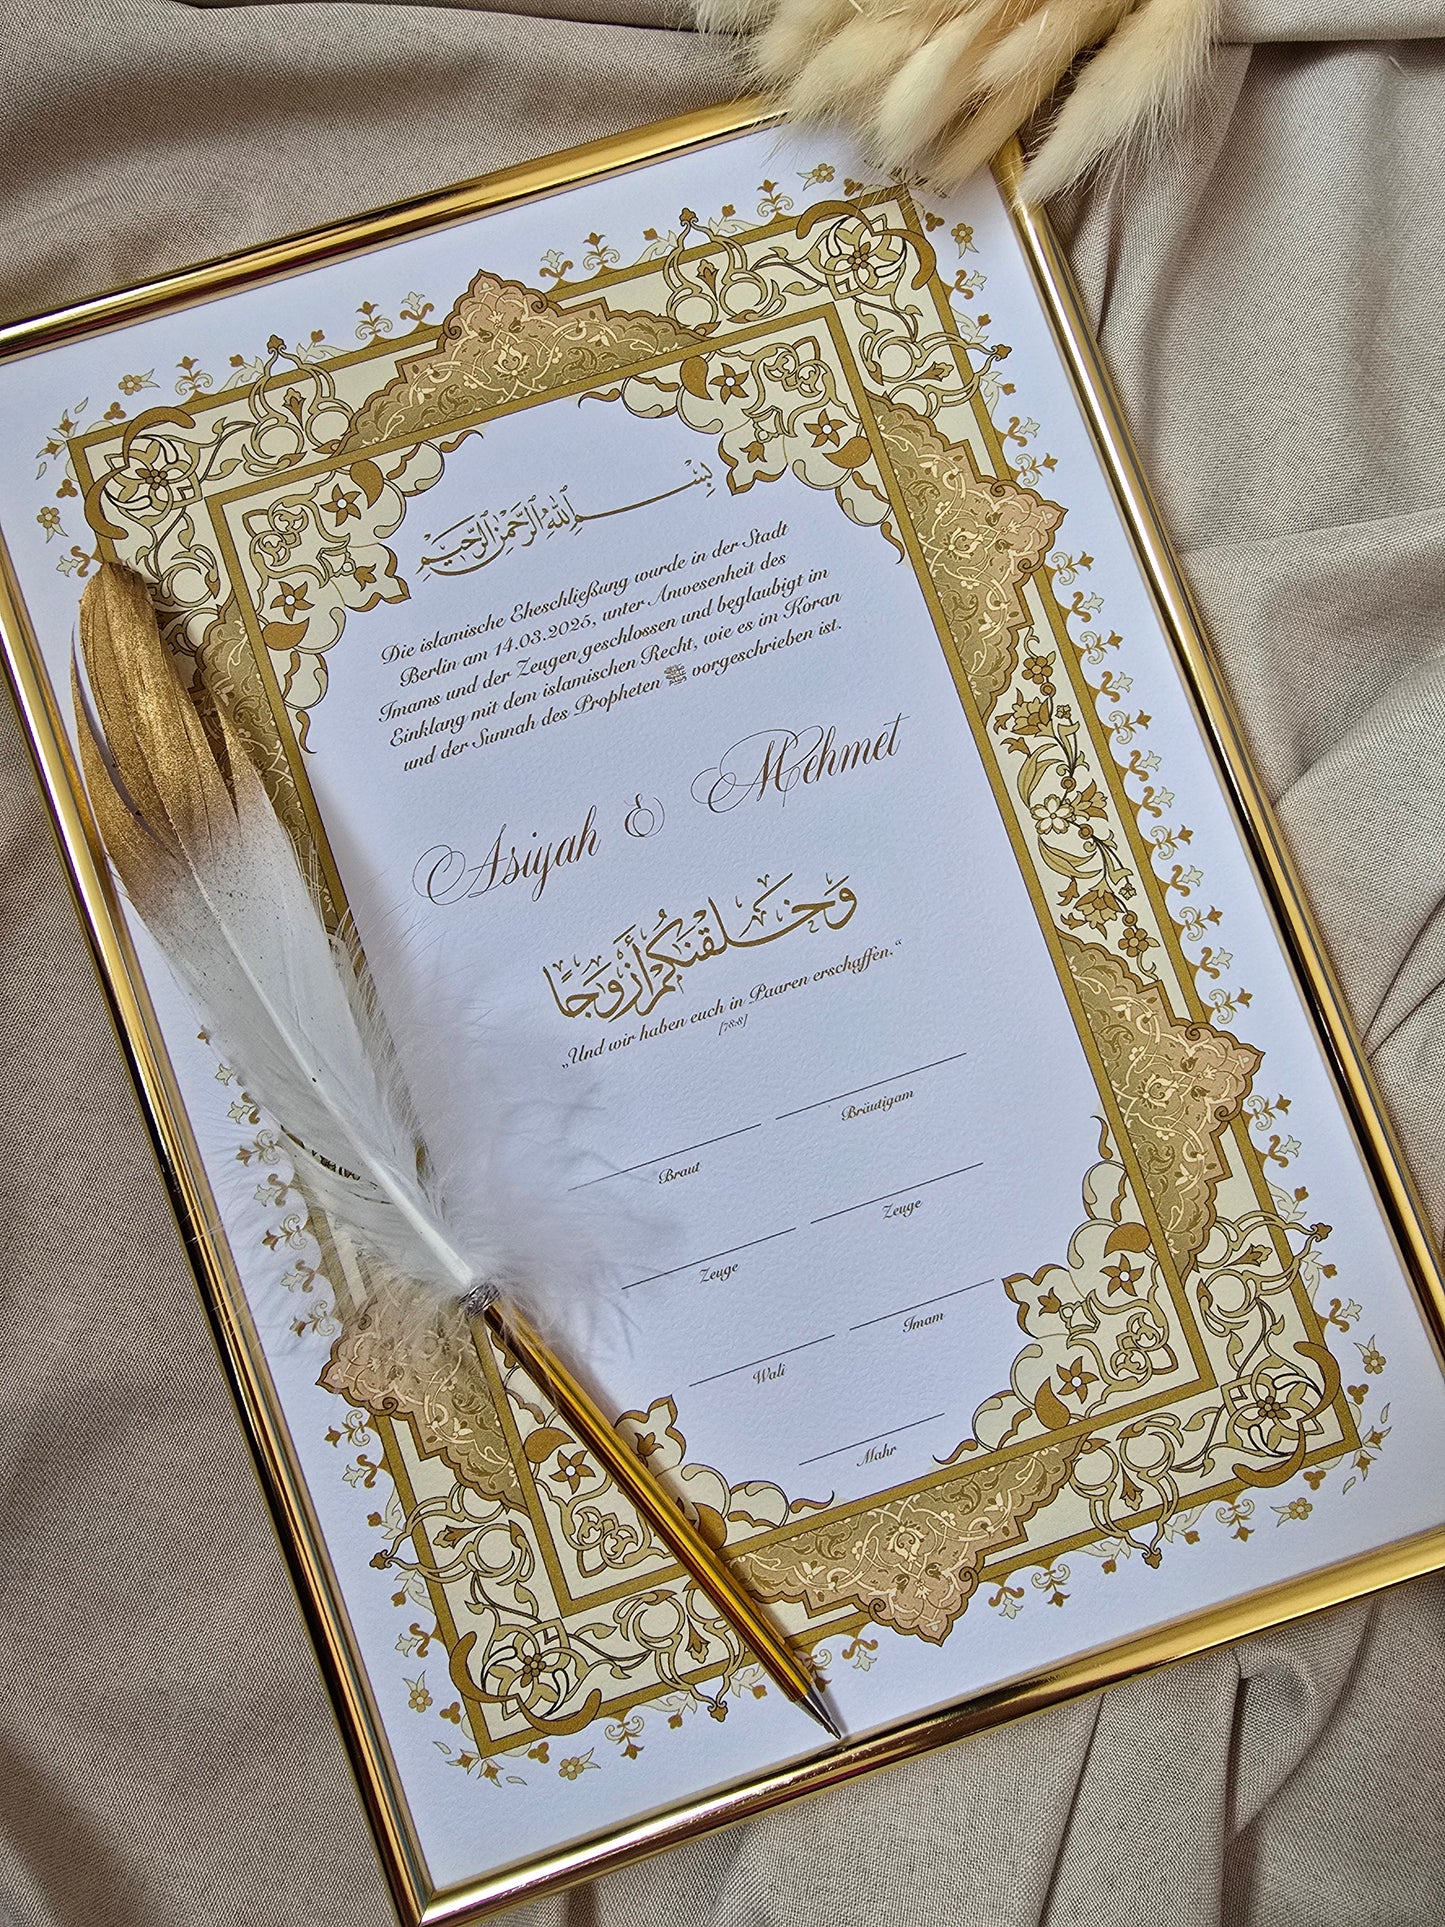 بِسْمِ ٱللَّهِ ٱلرَّحْمَٰنِ ٱلرَّحِيمِ
Die islamische Eheschließung wurde in der Stadt
Berlin am 14.03.2025, unter Anwesenheit des
Imams und der Zeugen geschlossen und beglaubigt im
Einklang mit dem islamischen Recht, wie es im Koran
und der Sunnah des Propheten ﷺ vorgeschrieben ist.
Asiyah & Mehmet
وَخَلَقْنَٰكُمْ أَزْوَٰجًا
„Und wir haben euch in Paaren erschaffen.“
[78:8]
Braut
Bräutigam
Zeuge
Zeuge
Wali
Imam
Mahr